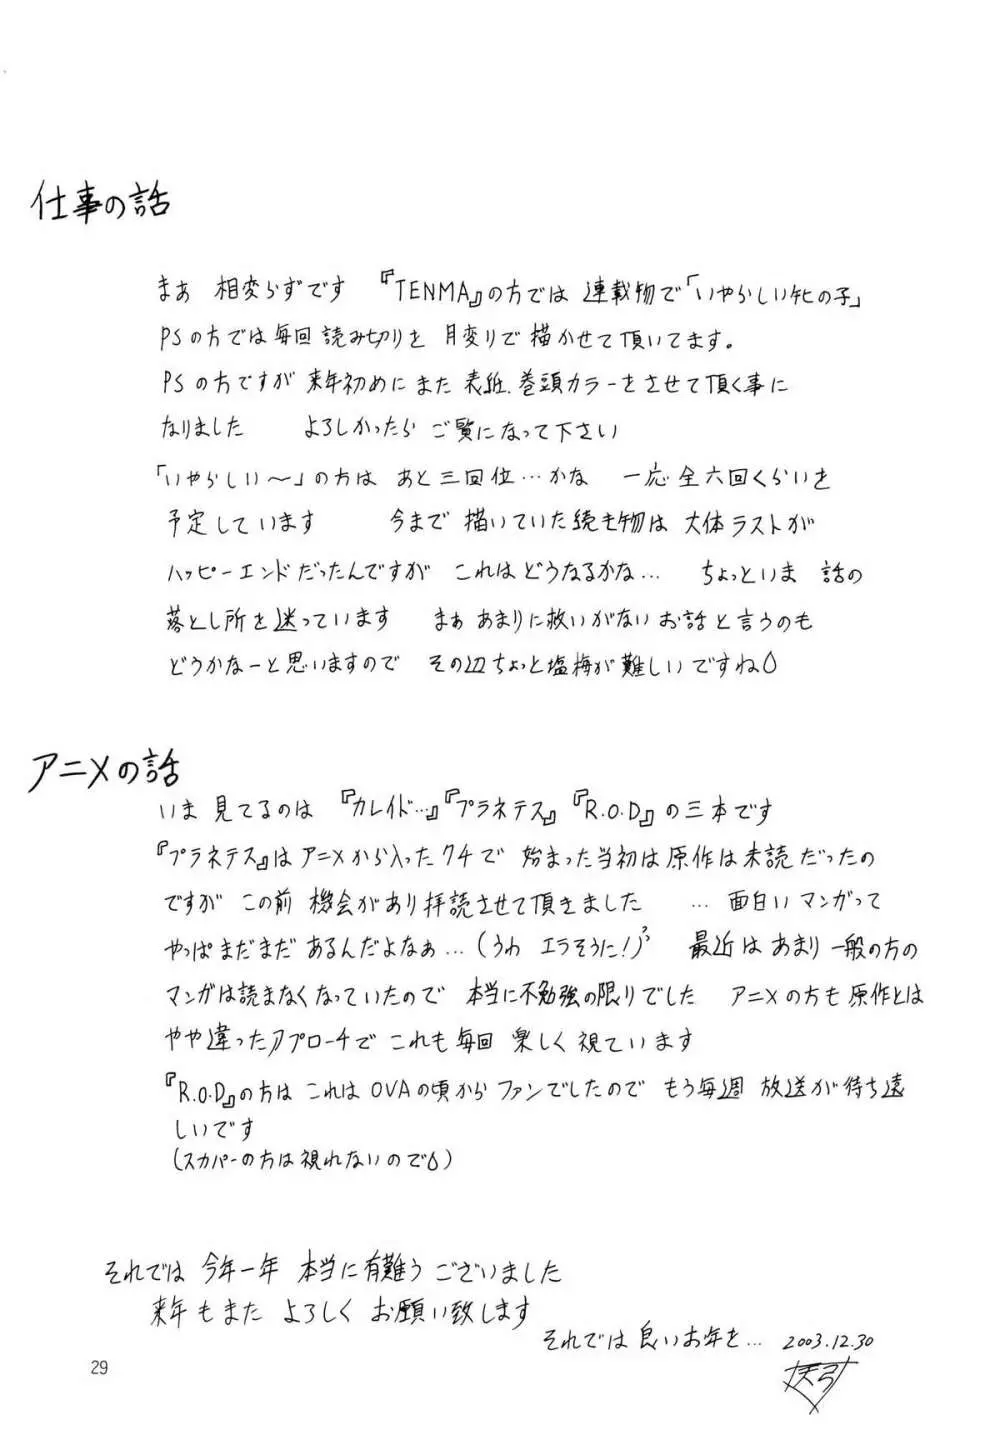 仕事の話
まあ 相変らずです 『TENMA』の方では 連載物で「いやらしい牝の子」
PSの方では毎回読み切りを 月変りで描かせて頂いてます。
PSの方ですが 来年初めにまた 表紙、巻頭カラーをさせて頂く事に
なりました よろしかったら ご覧になって下さい
「いやらしい〜」の方は あと三回位…かな 一応全六回くらいを
予定しています 今まで描いていた続き物は 大体ラストが
ハッピーエンドだったんですが これはどうなるかな… ちょっといま 話の
落とし所を迷っています まぁ あまりに救いがないお話と言うのも
どうかなーと思いますので その辺ちょっと塩梅が難しいですね
アニメの話
いま 見てるのは 『カレイド…』『プラネテス』『R.O.D』の三本です
『プラネテス』はアニメから入ったクチで 始まった当初は原作は未読だったの
ですが この前 機会があり拝読させて頂きました … 面白いマンガって
やっぱまだまだ あるんだよなぁ…(うわ エラそうに!) 最近は あまり 一般の方の
マンガは読まなくなっていたので 本当に不勉強の限りでした アニメの方も原作とは
やや違ったアプローチで これも毎回 楽しく視ています
『R.O.D』の方は これはOVAの頃からファンでしたので もう毎週 放送が待ち遠
しいです
(スカパーの方は視れないので)
それでは 今年一年 本当に有難うございました
来年もまた よろしく お願い致します
それでは良いお年を… 2003.12.30
29